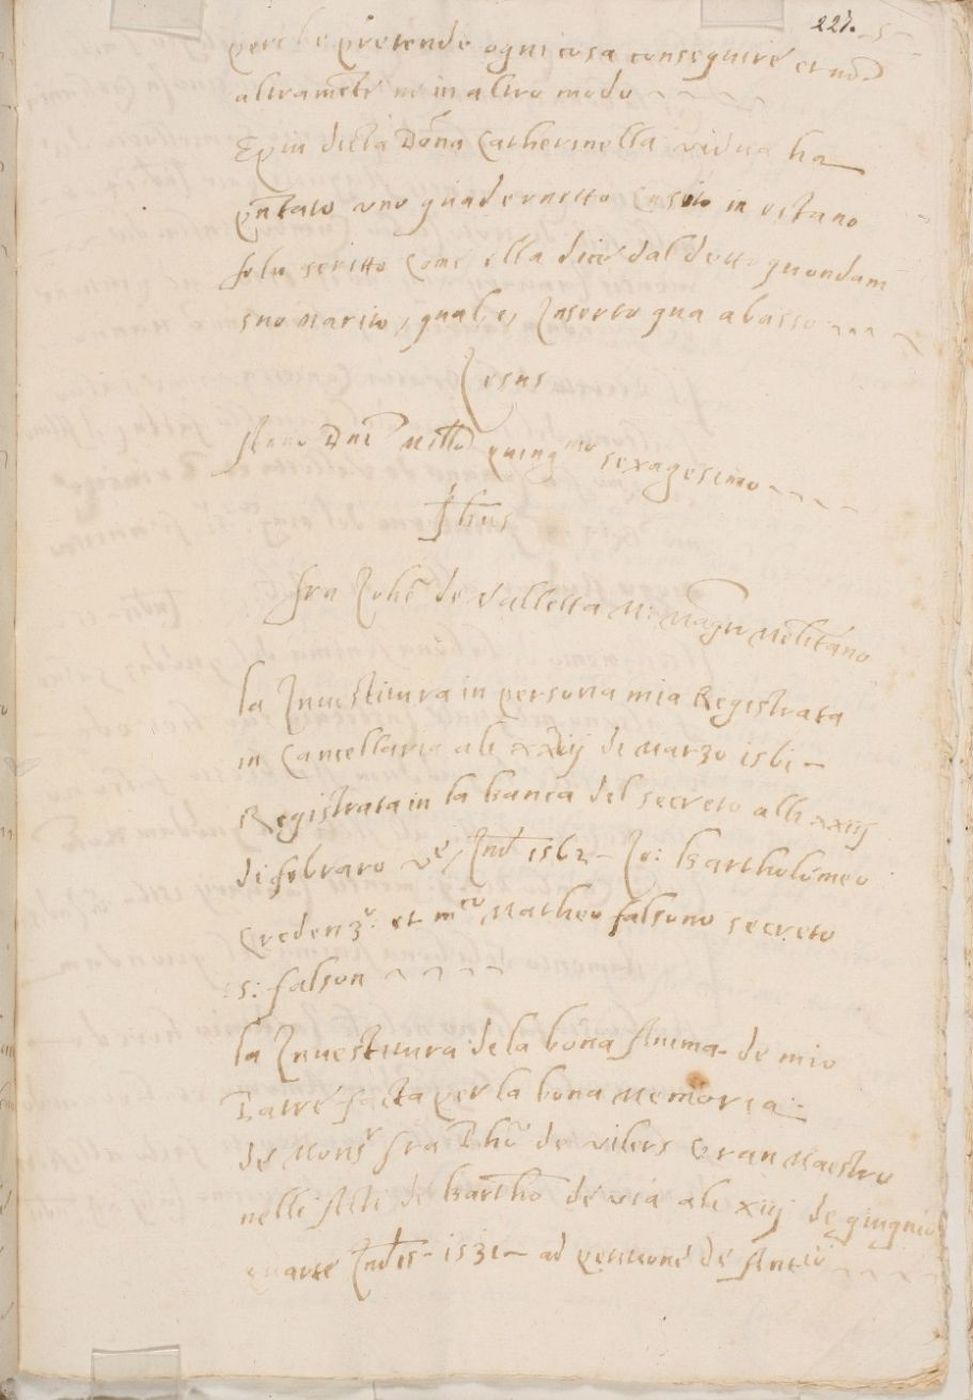 227.
perche pretende ogni cosa conseguire et no
altramẽte ne in altro modo
Et piu dicta Dõna Catherinella vidua ha
pñtato uno quadernetto in octavo
folu scritto come ella dice dal detto quondam
suo marito, qual e, Inserto qua abasso
Jesus
Anno Dni Millo quingmo sexagesimo
Jhus
fra Johẽ de Valletta Mro Magro Melitano
la Investitura in persona mia Registrata
in Cancellaria ali xxiij di Marzo 1561
Registrata in la banca del secreto alli xxiij
di febraro ve, Ind 1562 Jo: Bartholomeo
Credenzr. et mco Matheo falsono secreto
s: falson
la Investitura de la bona Anima de mio
Patre facta per la bona Memoria
de Monsr fra Phõ de vilers Gran Maestro
nelli Acti de Bartho de via ali xiij de giugnio
quarte Indis 1531 ad petitione de Antco